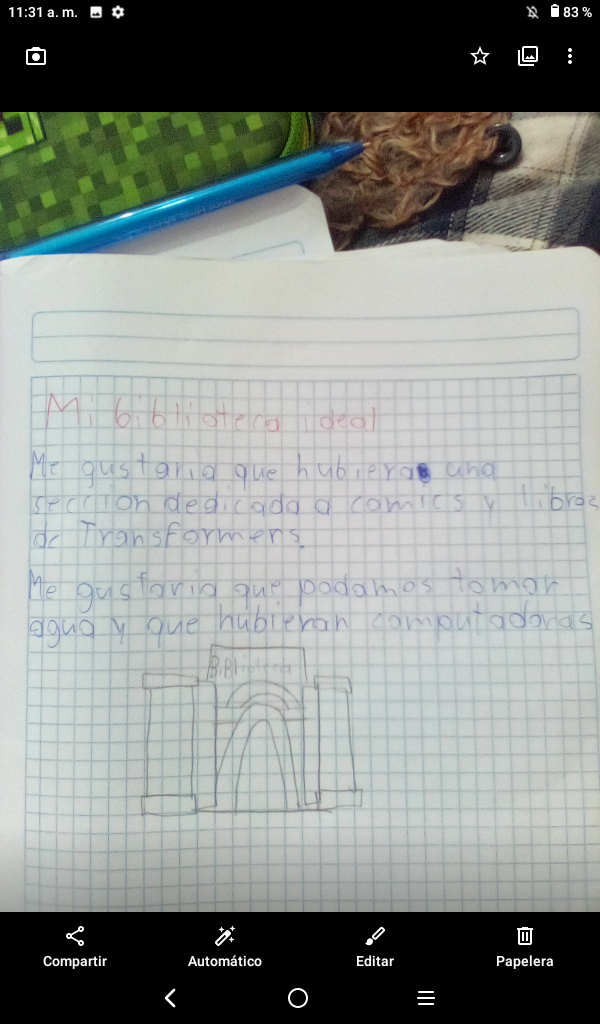 11:31 a. m.
83 %
Mi biblioteca ideal
Me gustaria que hubiera una
sección dedicada a comics y libros
de Transformers.
Me gustaria que podamos tomar
agua y que hubieran computadoras
Biblioteca
Compartir
Automático
Editar
Papelera